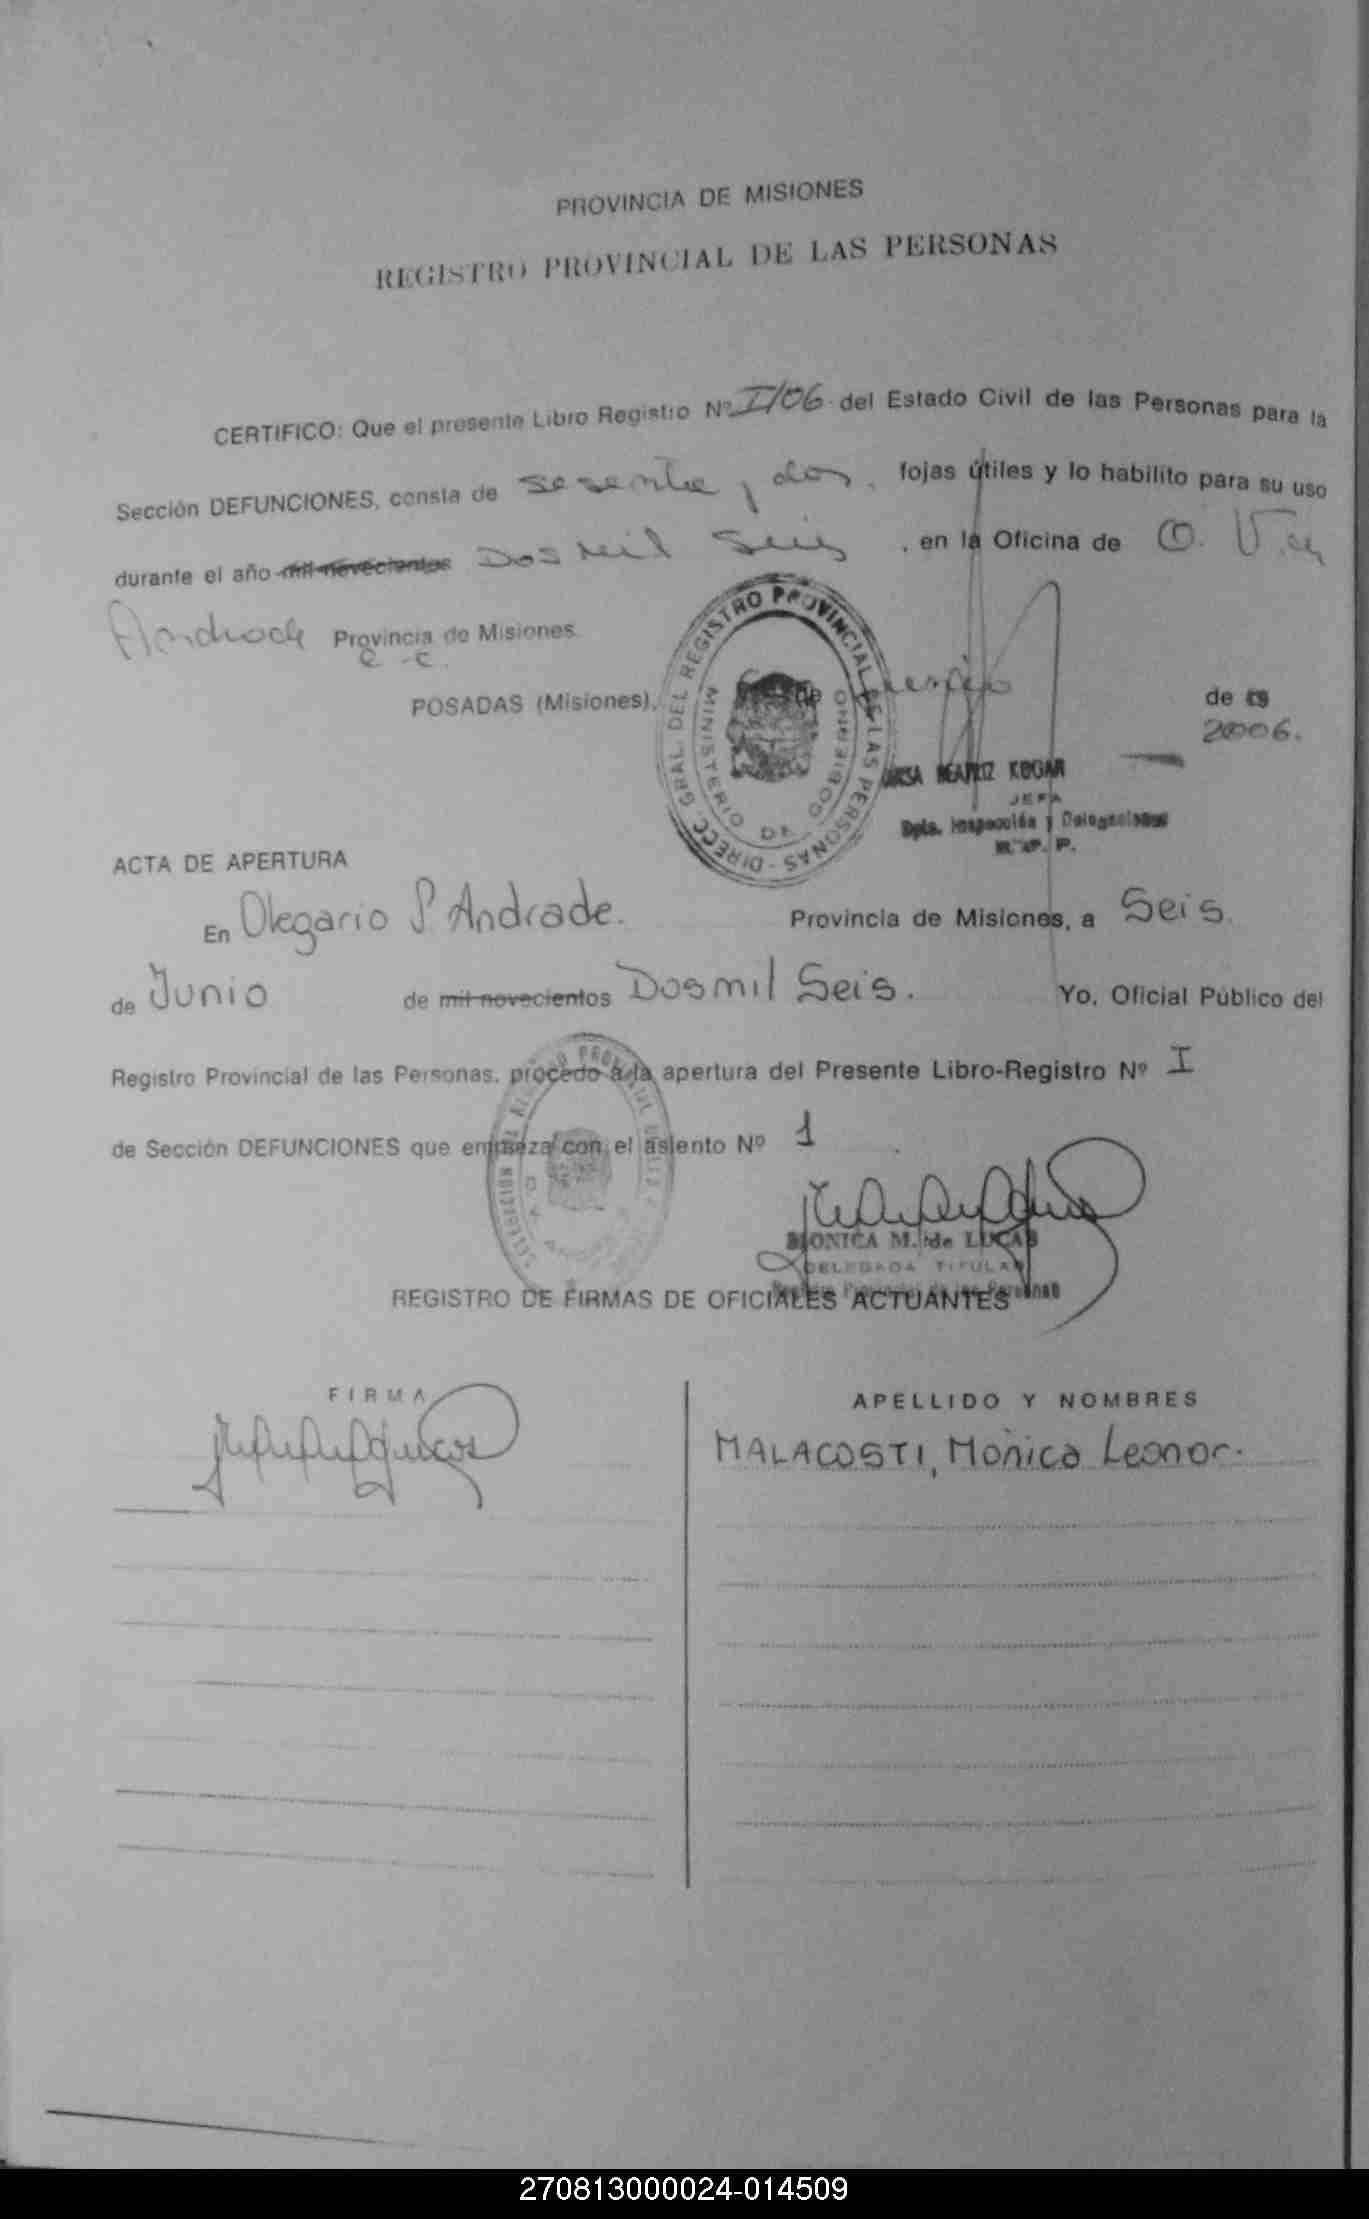 PROVINCIA DE MISIONES
REGISTRO PROVINCIAL DE LAS PERSONAS
CERTIFICO: Que el presente Libro Registro Nº I/06 del Estado Civil de las Personas para la
Sección DEFUNCIONES, consta de sesenta y dos, fojas útiles y lo habilito para su uso
durante el año mil novecientos Dos mil Seis, en la Oficina de O. V.
Andrade Provincia de Misiones.
POSADAS (Misiones), de de 19
2006.
DIRECC. GRAL. DEL REGISTRO PROVINCIAL DE LAS PERSONAS - MINISTERIO DE GOBIERNO
BEATRIZ KUGAR
JEFA
Dpto. Inspección y Delegaciones
R. P. P.
ACTA DE APERTURA
En Olegario V. Andrade. Provincia de Misiones, a Seis.
de Junio de mil novecientos Dosmil Seis. Yo, Oficial Público del
Registro Provincial de las Personas, procedo a la apertura del Presente Libro-Registro Nº I
de Sección DEFUNCIONES que empieza con el asiento Nº 1
MONICA M. de LUCAS
DELEGADA TITULAR
Registro Provincial de las Personas
REGISTRO DE FIRMAS DE OFICIALES ACTUANTES
FIRMA
APELLIDO Y NOMBRES
MALACOSTI, Mónica Leonor.
270813000024-014509